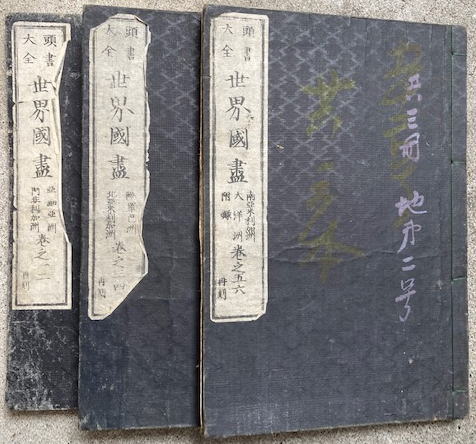 共三冊 地第二号
頭書
大全
世界國盡
南亞米利加洲
大洋洲
附錄
卷之五六
再刻
頭書
大全
世界國盡
歐羅巴洲
北亞米利加洲
卷之三四
再刻
頭書
大全
世界國盡
亞細亞洲
阿非利加洲
卷之一二
再刻